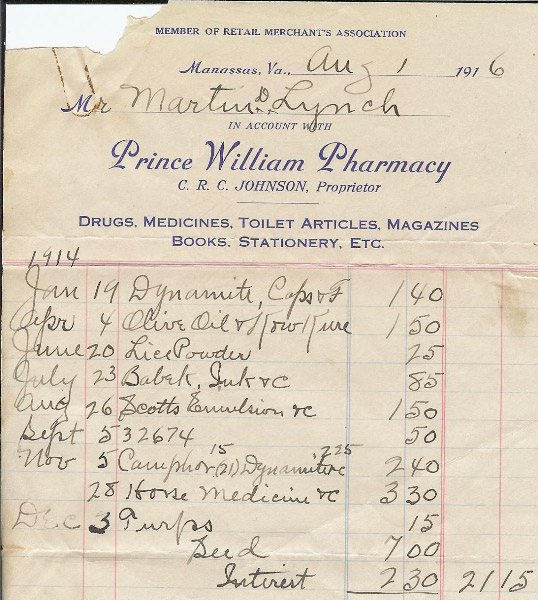 MEMBER OF RETAIL MERCHANT'S ASSOCIATION
Manassas, Va., Aug 1 1916
Mr Martin D. Lynch
IN ACCOUNT WITH
Prince William Pharmacy
C. R. C. JOHNSON, Proprietor
DRUGS, MEDICINES, TOILET ARTICLES, MAGAZINES
BOOKS, STATIONERY, ETC.
1914
Jan 19 Dynamite, Caps & F 1 40
Apr 4 Olive Oil & Kow Kure 1 50
June 20 Lice Powder 25
July 23 Babek, Ink &c 85
Aug 26 Scotts Emulsion &c 1 50
Sept 5 32674 50
Nov 5 Camphor 15 (21) Dynamite &c 2 25 2 40
28 Horse Medicine &c 3 30
Dec 3 Turps 15
Seed 7 00
Interest 2 30 21 15